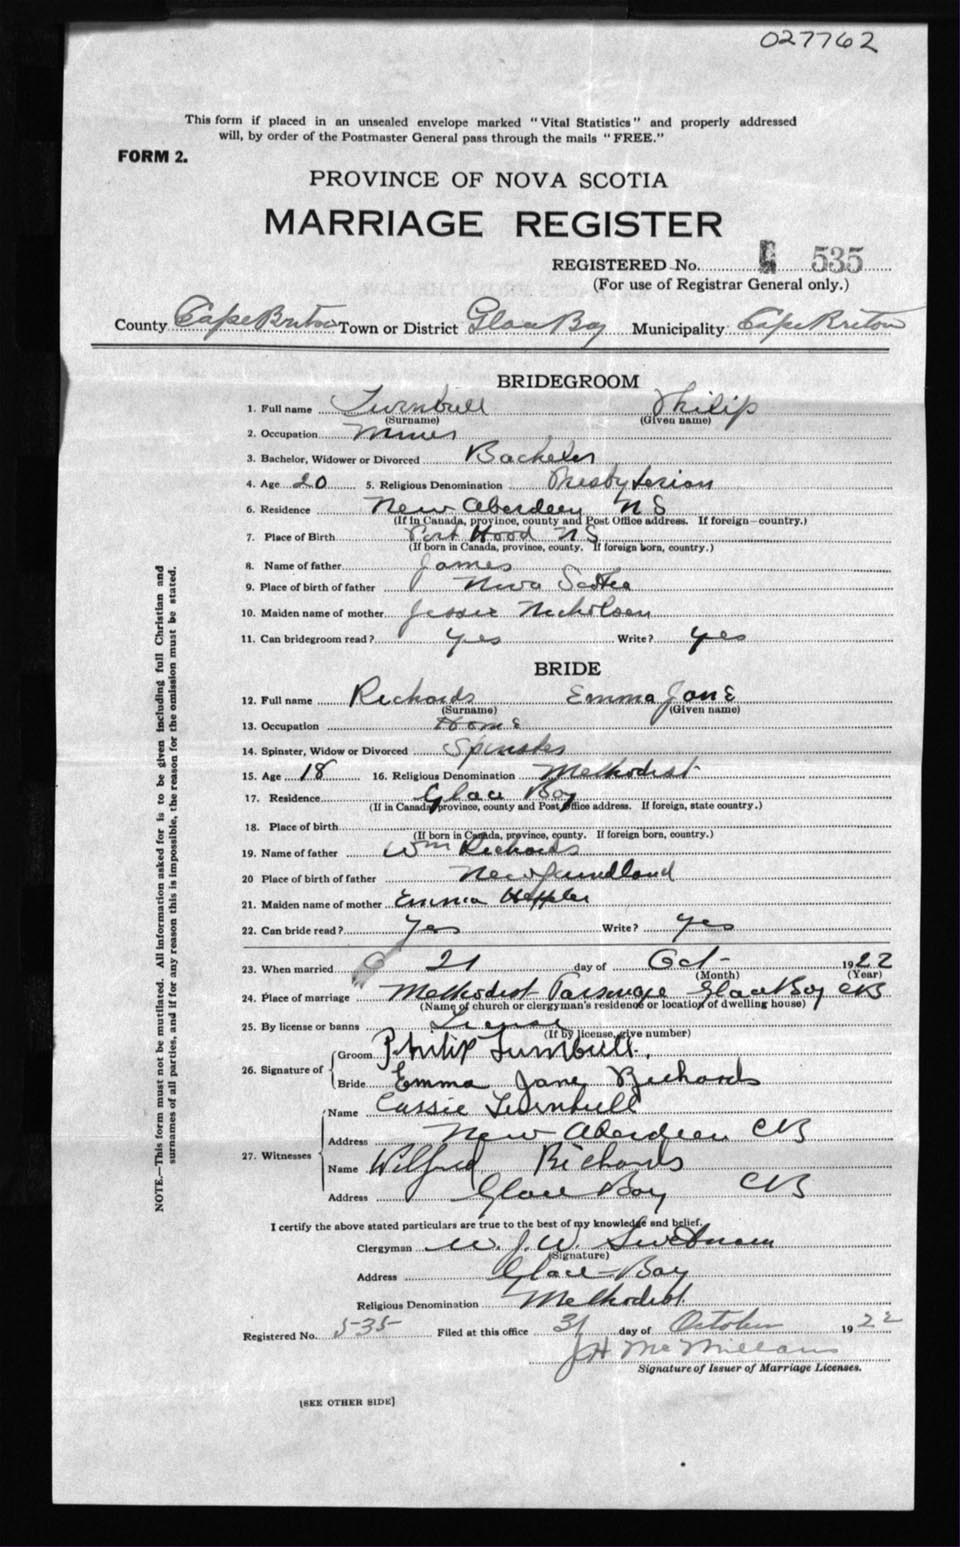 027762
This form if placed in an unsealed envelope marked "Vital Statistics" and properly addressed
will, by order of the Postmaster General pass through the mails "FREE."
FORM 2.
PROVINCE OF NOVA SCOTIA
MARRIAGE REGISTER
REGISTERED No. 535
(For use of Registrar General only.)
County Cape Breton Town or District Glace Bay Municipality Cape Breton
BRIDEGROOM
1. Full name Turnbull Philip
(Surname) (Given name)
2. Occupation Miner
3. Bachelor, Widower or Divorced Bachelor
4. Age 20 5. Religious Denomination Presbyterian
6. Residence New Aberdeen N S
(If in Canada, province, county and Post Office address. If foreign—country.)
7. Place of Birth Port Hood N S
(If born in Canada, province, county. If foreign born, country.)
8. Name of father James
9. Place of birth of father Nova Scotia
10. Maiden name of mother Jessie Nicholson
11. Can bridegroom read? Yes Write? Yes
BRIDE
12. Full name Richards Emma Jane
(Surname) (Given name)
13. Occupation Home
14. Spinster, Widow or Divorced Spinster
15. Age 18 16. Religious Denomination Methodist
17. Residence Glace Bay
(If in Canada, province, county and Post Office address. If foreign, state country.)
18. Place of birth
(If born in Canada, province, county. If foreign born, country.)
19. Name of father Wm Richards
20 Place of birth of father Newfoundland
21. Maiden name of mother Emma
22. Can bride read? Yes Write? Yes
23. When married 21 day of Oct - 1922
(Month) (Year)
24. Place of marriage Methodist Parsonage Glace Bay CB
(Name of church or clergyman's residence or location of dwelling house)
25. By license or banns License
(If by license, give number)
26. Signature of Groom Philip Turnbull.
Bride Emma Jane Richards
27. Witnesses Name Cassie Turnbull
Address New Aberdeen CB
Name Wilfred Richards
Address Glace Bay CB
I certify the above stated particulars are true to the best of my knowledge and belief.
Clergyman W. J. W. Swetnam
(Signature)
Address Glace-Bay
Religious Denomination Methodist
Registered No. 535 Filed at this office 31 day of October 1922
J H McMillan
Signature of Issuer of Marriage Licenses.
[SEE OTHER SIDE]
NOTE.—This form must not be mutilated. All information asked for is to be given including full Christian and
surnames of all parties, and if for any reason this is impossible, the reason for the omission must be stated.